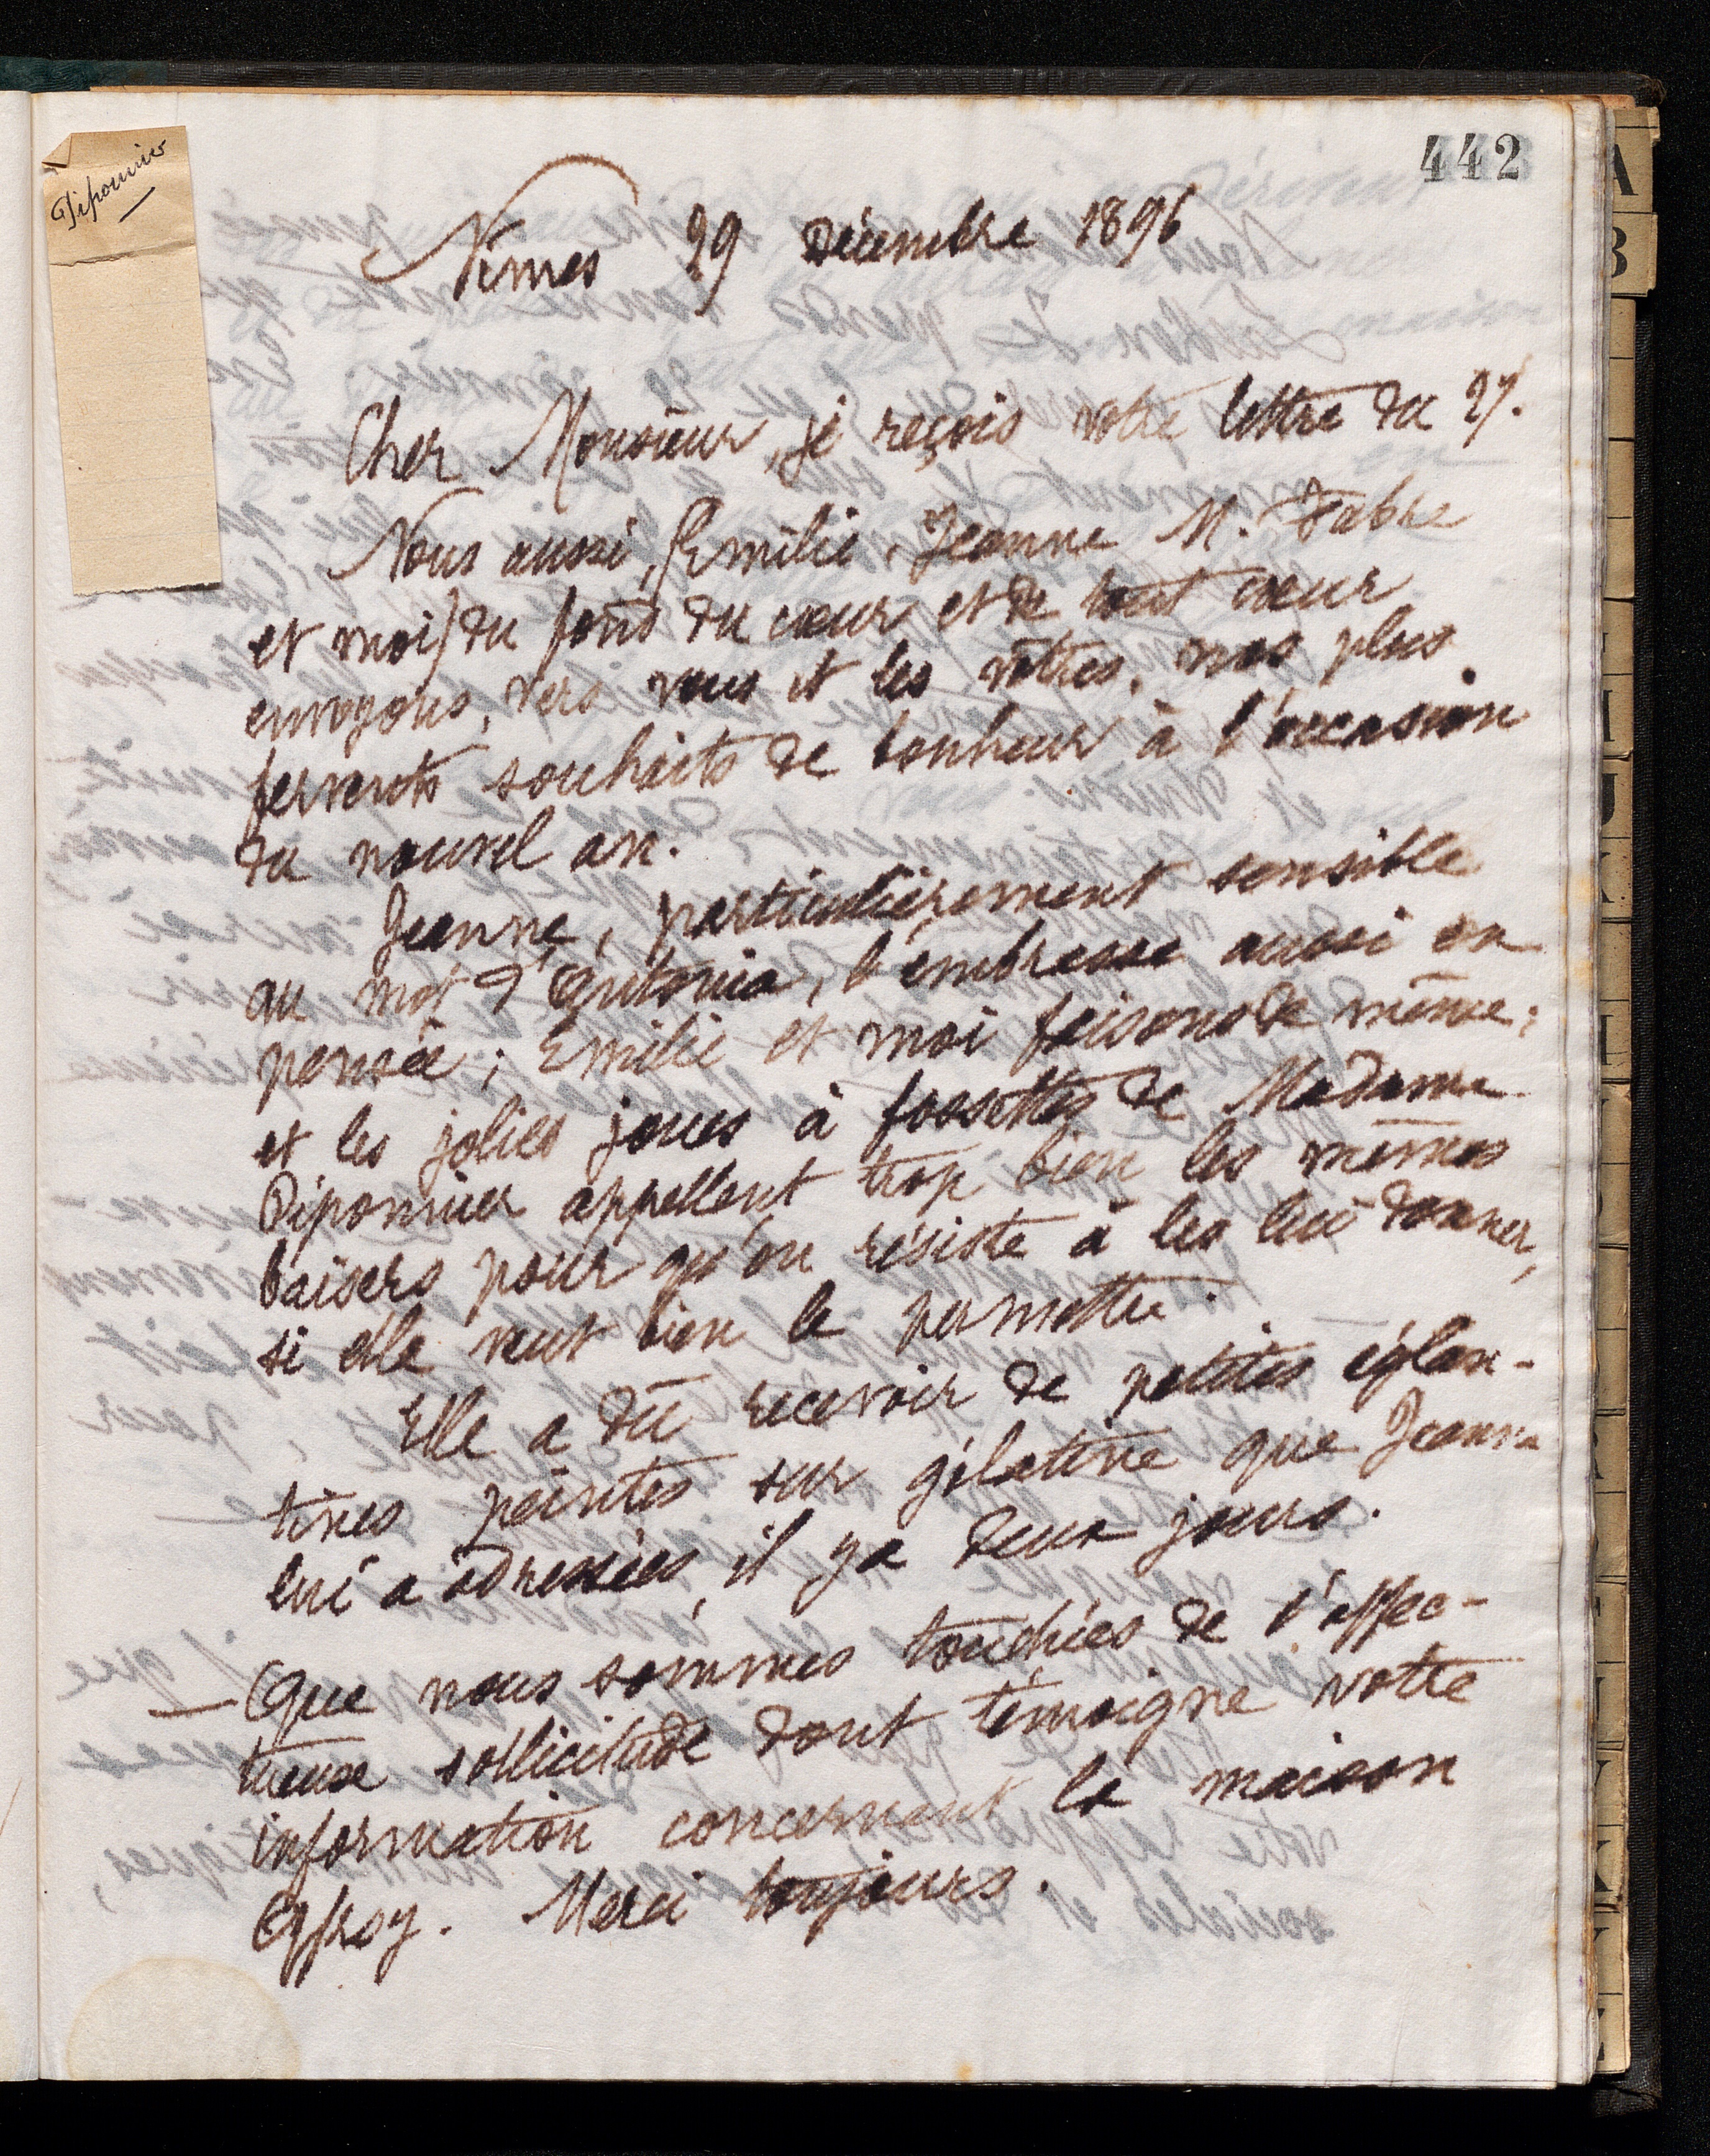 442
Piponnier
Nîmes 29 Décembre 1896
Cher Monsieur, je reçois votre lettre du 27.
Nous aussi, (Emilie, Jeanne M. Fabre
et moi) du fond du cœur et de tout cœur
envoyons, vers vous et les vôtres, nos plus
fervents souhaits de bonheur à l'occasion
du nouvel an.
Jeanne, particulièrement sensible
au mot d'Antonia, l'embrasse aussi en
pensée; Emilie et moi faisons de même;
et les jolies joues à fossettes de Madame
Piponnier appellent trop bien les mêmes
baisers pour qu'on résiste à les lui donner,
si elle veut bien le permettre.
Elle a dû recevoir de petites églan-
tines peintes sur gélatine que Jeanne
lui a adressées, il y a deux jours.
— Que nous sommes touchées de l'affec-
tueuse sollicitude dont témoigne votre
information concernant la maison
Offroy. Merci toujours.